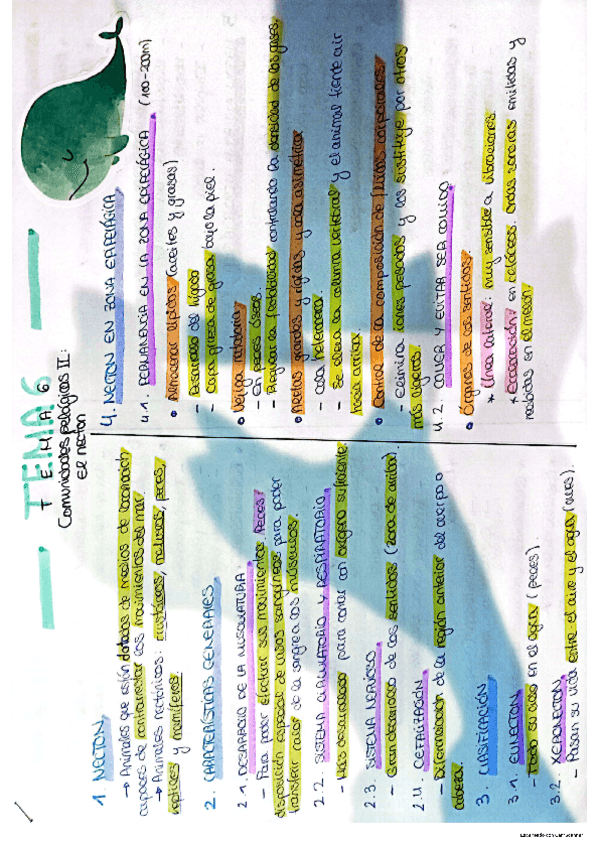 TEMA 6
TEMA 6
Comunidades pelágicas II:
el necton
1. NECTON
→ Animales que están dotados de medios de locomoción
capaces de contrarrestar los movimientos del mar.
→ Animales nectónicos: crustáceos, moluscos, peces,
reptiles y mamíferos.
2. CARACTERÍSTICAS GENERALES
2.1. DESARROLLO DE LA MUSCULATURA
- Para poder efectuar sus movimientos. Peces:
disposición especial de vasos sanguíneos para poder
transferir calor de la sangre a los músculos.
2.2. SISTEMA CIRCULATORIO Y RESPIRATORIO
- Más desarrollado para contar con oxígeno suficiente.
2.3. SISTEMA NERVIOSO
- Gran desarrollo de los sentidos (zona de arriba).
2.4. CEFALIZACIÓN
- Diferenciación de la región anterior del cuerpo o
cabeza.
3. CLASIFICACIÓN
3.1. EUNECTON
- Toda su vida en el agua (peces).
3.2. XERONECTON
- Pasan su vida entre el aire y el agua (aves).
4. NECTON EN ZONA EPIPELÁGICA
4.1. PERMANENCIA EN LA ZONA EPIPELÁGICA (100-200m)
• Almacenar lípidos (aceites y grasas)
- Desarrollo del hígado
- Capa gruesa de grasa bajo la piel.
• Vejiga natatoria
- En peces óseos.
- Regulan la flotabilidad controlando la densidad de los gases.
• Aletas grandes y rígidas y cola asimétrica
- Cola heterocerca
- Se eleva la columna vertebral y el animal tiende a ir
hacia arriba.
• Control de la composición de fluidos corporales.
- Elimina iones pesados y los sustituye por otros
más ligeros.
4.2. COMER Y EVITAR SER COMIDO
• Órganos de los sentidos:
* Línea lateral: muy sensible a vibraciones.
* Ecolocación: en cetáceos. Ondas sonoras emitidas y
recibidas en el melón.
Escaneado con CamScanner